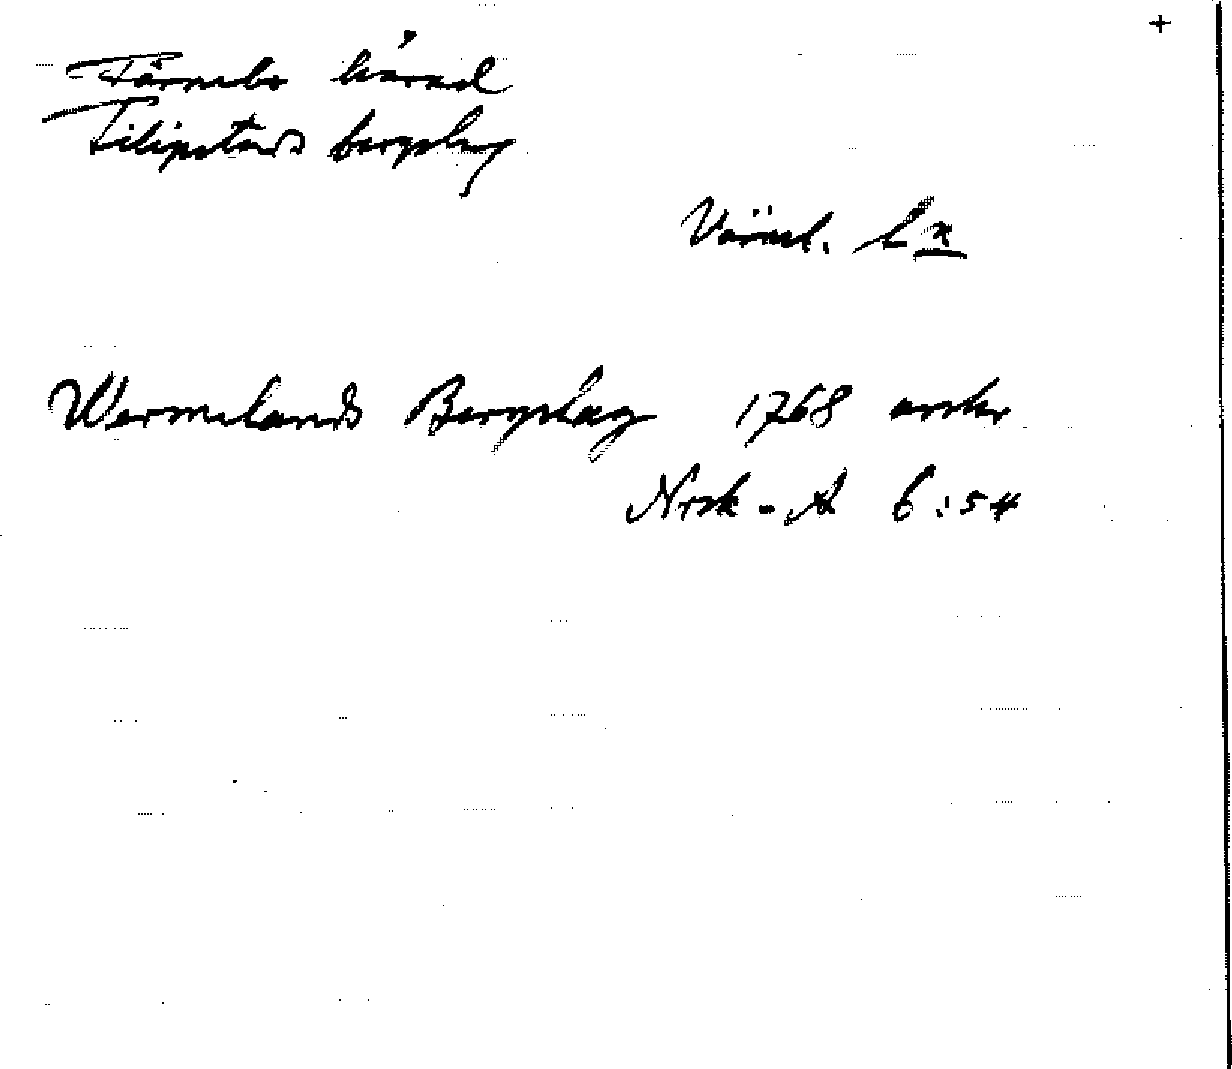 +
Färnebo härad
Filipstads bergslag
Värml. l x
Wermelands Bergslag 1768 avskr
Nrsk-A 6:54